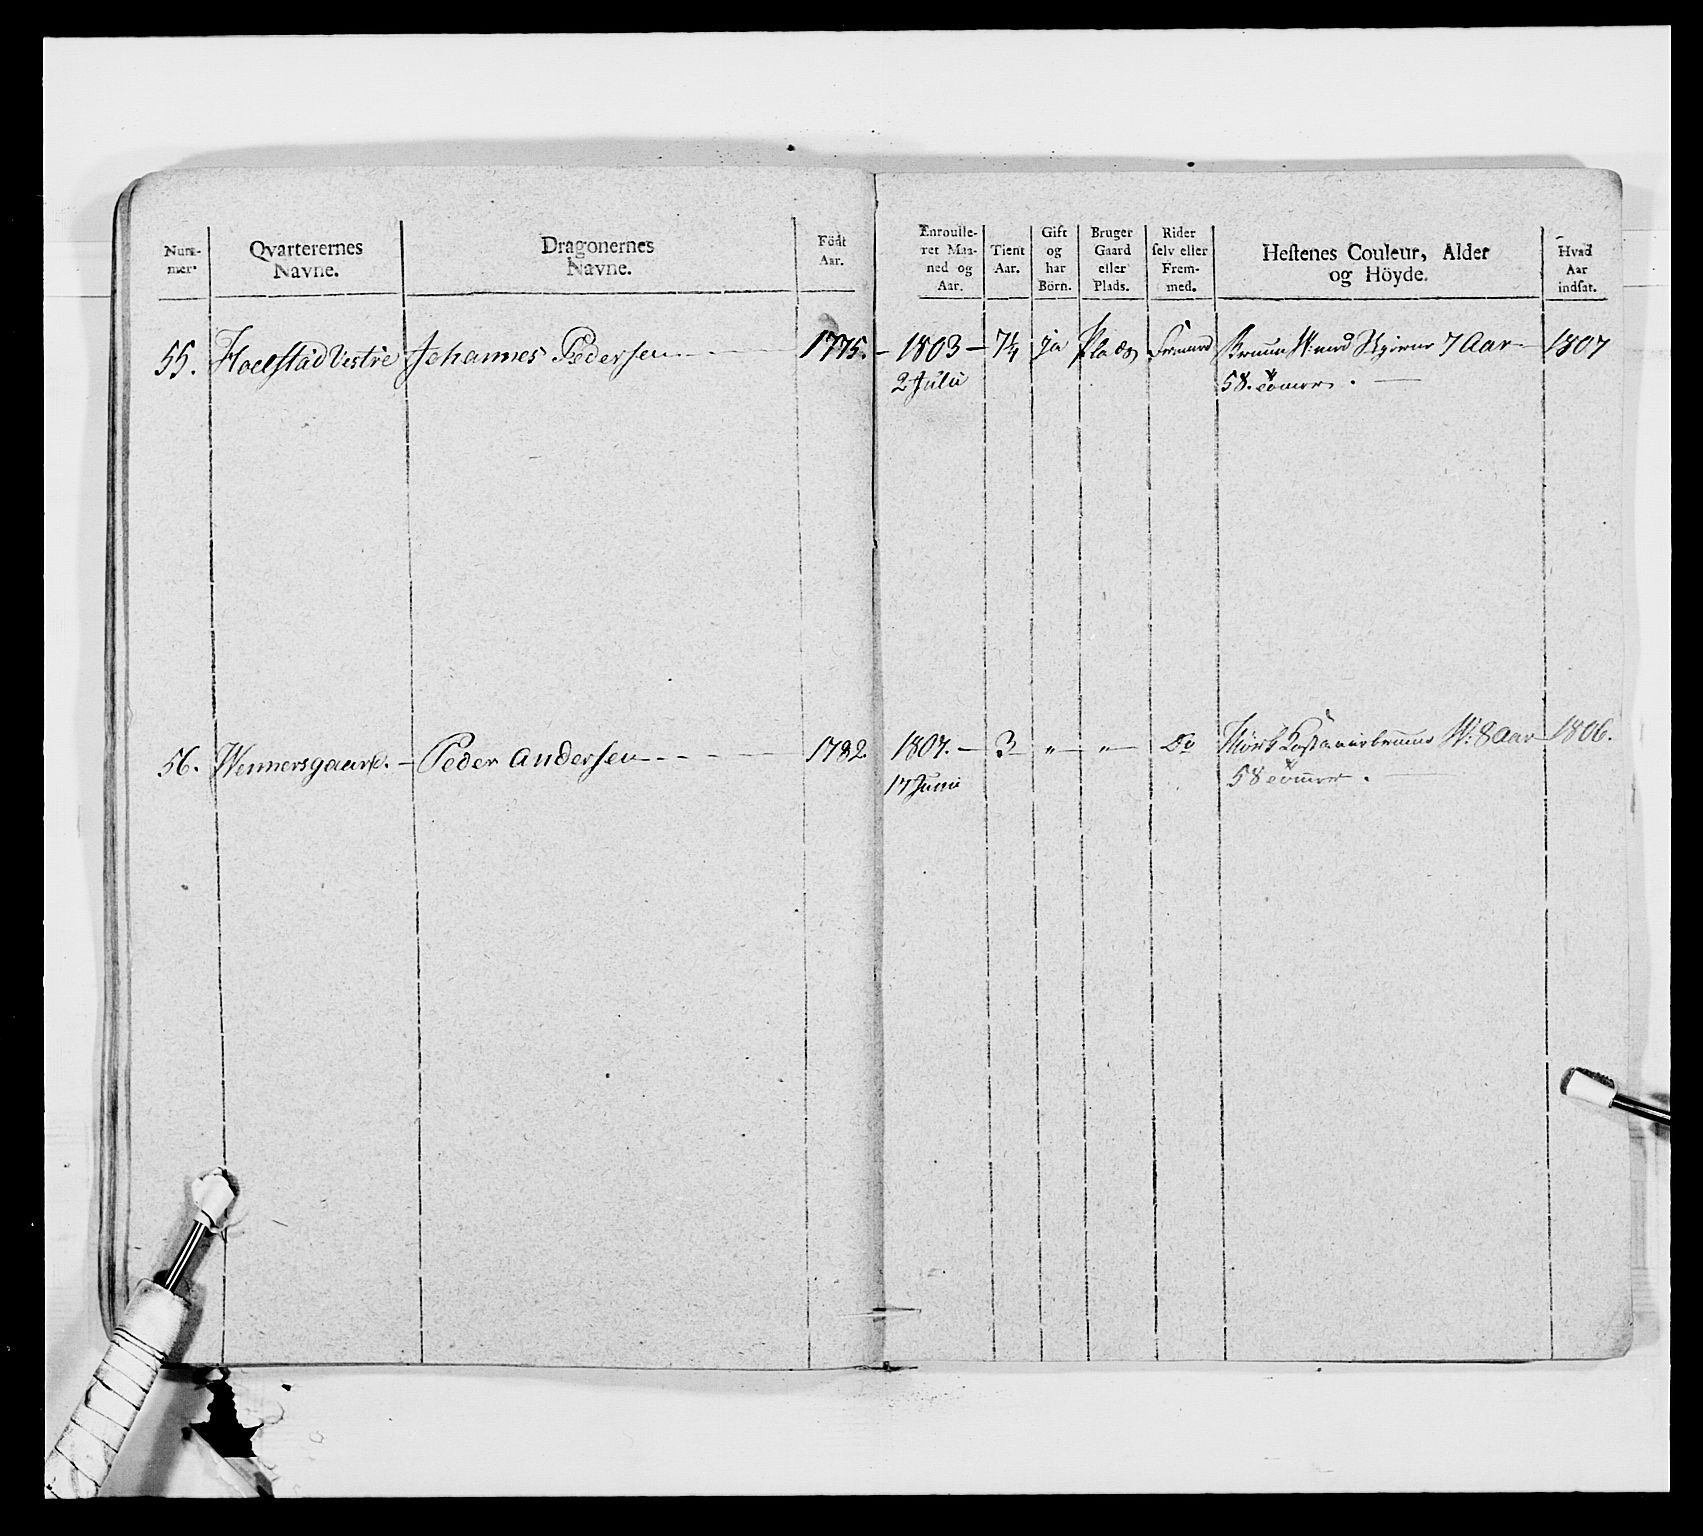 Num-
mer.
Qvarterernes
Navne.
Dragonernes
Navne.
Födt
Aar.
Enroulle-
ret Maa-
ned og
Aar.
Tient
Aar.
Gift
og
har
Börn.
Bruger
Gaard
eller
Plads.
Rider
selv eller
Frem-
med.
Hestenes Couleur, Alder
og Höyde.
Hvad
Aar
indsat.
55. Hoelstad Vestre Johannes Pedersen 1775. 1803 7¼ ja Plads Fremmed 7 Aar 1807
2 Julii 58. tommer.
56. Wennersgaard. Peder Andersen 1782 1807. 3 " " Do Mörk Kastaniebruun W: 8 Aar 1806.
17 Junii 58 tommer.